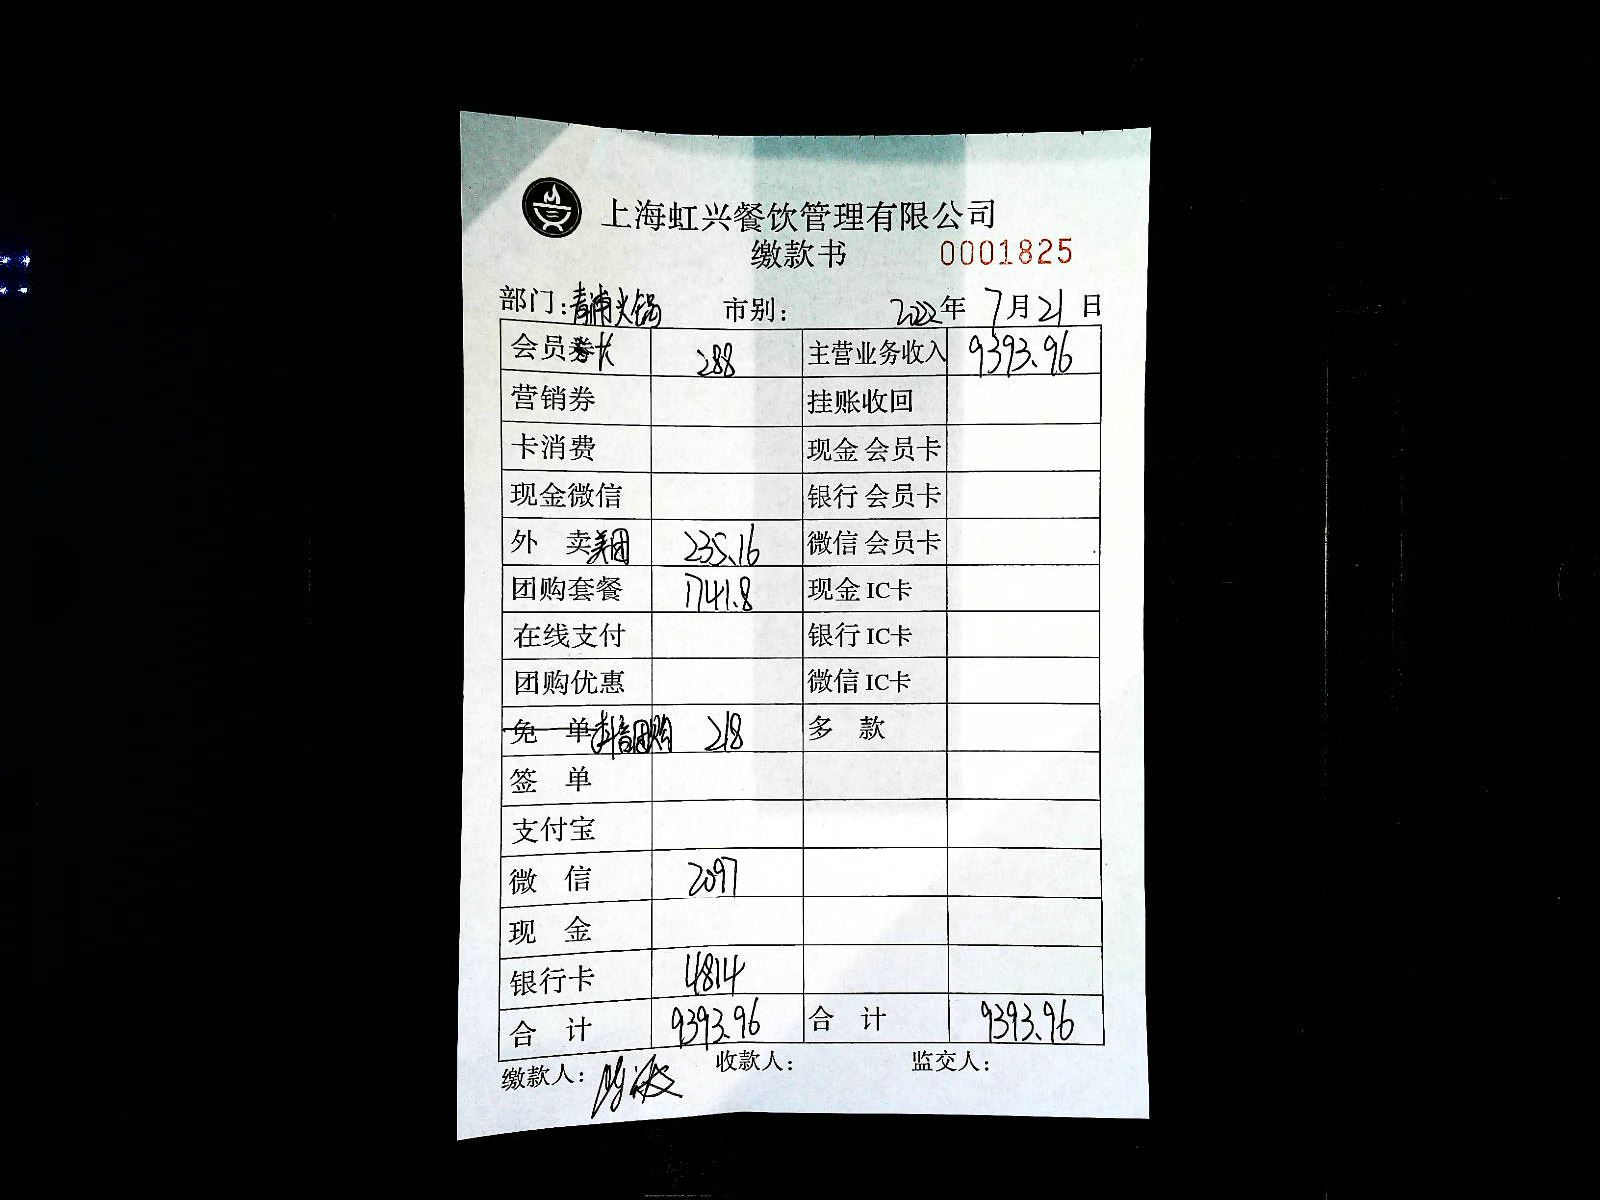 上海虹兴餐饮管理有限公司
缴款书 0001825
部门：青浦火锅 市别： 2022年 7月21日
会员卡 288 主营业务收入 9393.96
营销券 挂账收回
卡消费 现金 会员卡
现金微信 银行 会员卡
外 卖美团 235.16 微信 会员卡
团购套餐 1741.8 现金 IC卡
在线支付 银行 IC卡
团购优惠 微信 IC卡
免 单抖音团购 218 多 款
签 单
支付宝
微 信 2097
现 金
银行卡 4814
合 计 9393.96 合 计 9393.96
缴款人： 收款人： 监交人：